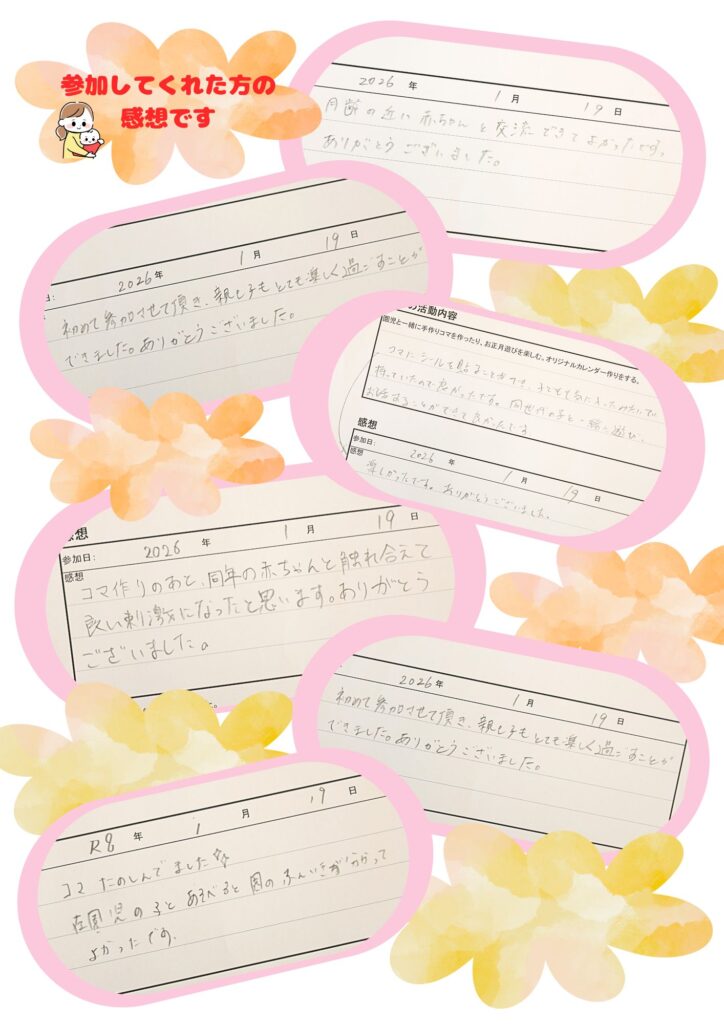 参加してくれた方の
感想です
2026 年 1 月 19 日
月齢の近い赤ちゃんと交流できてよかったです。
ありがとうございました。
日:
2026年 1月 19日
初めて参加させて頂き、親も子もとても楽しく過ごすことが
できました。ありがとうございました。
の活動内容
園児と一緒に手作りコマを作ったり、お正月遊びを楽しむ。オリジナルカレンダー作りをする。
・コマにシールを貼ることができ、子どもも気に入ったみたいで
持っていたので良かったです。同世代の子と一緒に遊び、
お話することができて良かったです
感想
参加日:
2026 年 1 月 19 日
感想
楽しかったです。ありがとうございました。
感想
参加日: 2026 年 1 月 19 日
感想
コマ作りのあと、同年の赤ちゃんと触れ合えて
良い刺激になったと思います。ありがとう
ございました。
た。
2026年 1月 19日
初めて参加させて頂き、親も子もとても楽しく過ごすことが
できました。ありがとうございました。
R8 年 1 月 19 日
コマたのしんでました☆
在園児の子とあそべると園のふんいきが分かって
よかったです。